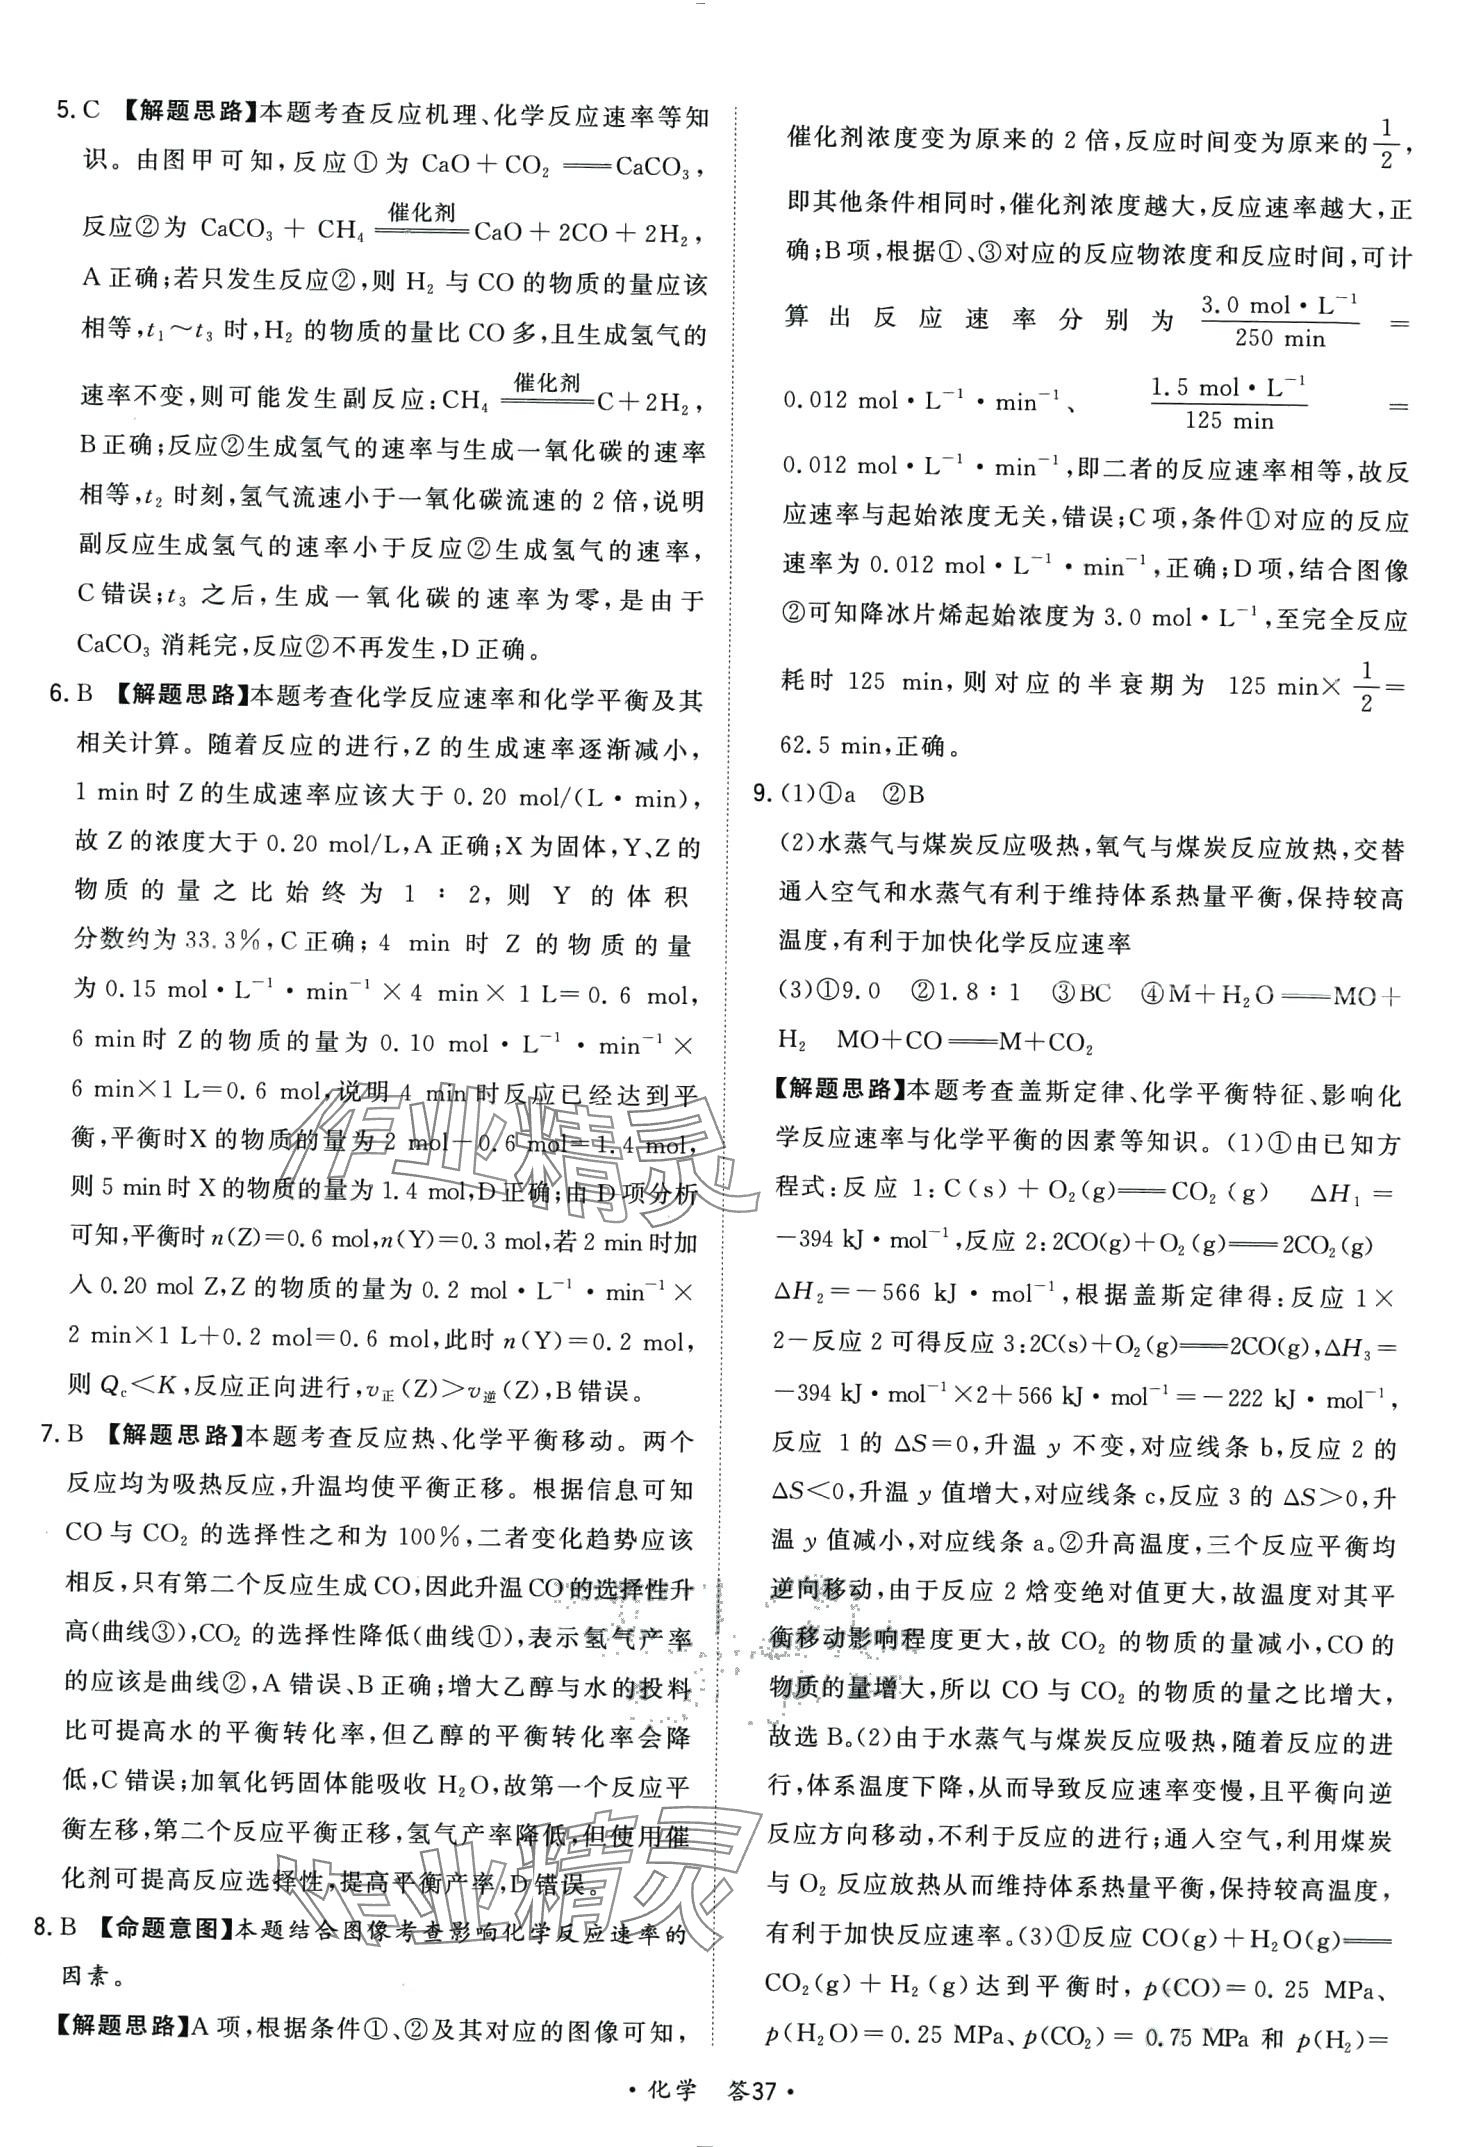 5. C 【解题思路】本题考查反应机理、化学反应速率等知
识。由图甲可知,反应①为 CaO+CO₂══CaCO₃,
反应②为 CaCO₃+CH₄ ══催化剂══ CaO+2CO+2H₂,
A正确;若只发生反应②,则 H₂ 与 CO 的物质的量应该
相等,t₁~t₃ 时,H₂ 的物质的量比 CO 多,且生成氢气的
速率不变,则可能发生副反应:CH₄ ══催化剂══ C+2H₂,
B正确;反应②生成氢气的速率与生成一氧化碳的速率
相等,t₂ 时刻,氢气流速小于一氧化碳流速的 2 倍,说明
副反应生成氢气的速率小于反应②生成氢气的速率,
C错误;t₃ 之后,生成一氧化碳的速率为零,是由于
CaCO₃ 消耗完,反应②不再发生,D正确。
6. B 【解题思路】本题考查化学反应速率和化学平衡及其
相关计算。随着反应的进行,Z的生成速率逐渐减小,
1 min时Z的生成速率应该大于 0.20 mol/(L·min),
故Z的浓度大于 0.20 mol/L,A正确;X为固体,Y、Z的
物质的量之比始终为 1∶2,则 Y 的体积
分数约为 33.3%,C正确;4 min 时 Z 的物质的量
为 0.15 mol·L⁻¹·min⁻¹×4 min×1 L=0.6 mol,
6 min时 Z的物质的量为 0.10 mol·L⁻¹·min⁻¹×
6 min×1 L=0.6 mol,说明 4 min时反应已经达到平
衡,平衡时X的物质的量为 2 mol-0.6 mol=1.4 mol,
则 5 min时 X的物质的量为 1.4 mol,D正确;由D项分析
可知,平衡时 n(Z)=0.6 mol,n(Y)=0.3 mol,若 2 min时加
入 0.20 mol Z,Z的物质的量为 0.2 mol·L⁻¹·min⁻¹×
2 min×1 L+0.2 mol=0.6 mol,此时 n(Y)=0.2 mol,
则 Qc<K,反应正向进行,v正(Z)>v逆(Z),B错误。
7. B 【解题思路】本题考查反应热、化学平衡移动。两个
反应均为吸热反应,升温均使平衡正移。根据信息可知
CO 与 CO₂ 的选择性之和为 100%,二者变化趋势应该
相反,只有第二个反应生成CO,因此升温CO的选择性升
高(曲线③),CO₂ 的选择性降低(曲线①),表示氢气产率
的应该是曲线②,A错误、B正确;增大乙醇与水的投料
比可提高水的平衡转化率,但乙醇的平衡转化率会降
低,C错误;加氧化钙固体能吸收 H₂O,故第一个反应平
衡左移,第二个反应平衡正移,氢气产率降低,但使用催
化剂可提高反应选择性,提高平衡产率,D错误。
8. B 【命题意图】本题结合图像考查影响化学反应速率的
因素。
【解题思路】A项,根据条件①、②及其对应的图像可知,
催化剂浓度变为原来的 2 倍,反应时间变为原来的 1/2,
即其他条件相同时,催化剂浓度越大,反应速率越大,正
确;B项,根据①、③对应的反应物浓度和反应时间,可计
算出反应速率分别为 3.0 mol·L⁻¹/250 min =
0.012 mol·L⁻¹·min⁻¹、 1.5 mol·L⁻¹/125 min =
0.012 mol·L⁻¹·min⁻¹,即二者的反应速率相等,故反
应速率与起始浓度无关,错误;C项,条件①对应的反应
速率为 0.012 mol·L⁻¹·min⁻¹,正确;D项,结合图像
②可知降冰片烯起始浓度为 3.0 mol·L⁻¹,至完全反应
耗时 125 min,则对应的半衰期为 125 min× 1/2 =
62.5 min,正确。
9. (1)①a ②B
(2)水蒸气与煤炭反应吸热,氧气与煤炭反应放热,交替
通入空气和水蒸气有利于维持体系热量平衡,保持较高
温度,有利于加快化学反应速率
(3)①9.0 ②1.8∶1 ③BC ④M+H₂O══MO+
H₂ MO+CO══M+CO₂
【解题思路】本题考查盖斯定律、化学平衡特征、影响化
学反应速率与化学平衡的因素等知识。(1)①由已知方
程式:反应 1:C(s)+O₂(g)══CO₂(g) ΔH₁=
-394 kJ·mol⁻¹,反应 2:2CO(g)+O₂(g)══2CO₂(g)
ΔH₂=-566 kJ·mol⁻¹,根据盖斯定律得:反应 1×
2-反应 2 可得反应 3:2C(s)+O₂(g)══2CO(g),ΔH₃=
-394 kJ·mol⁻¹×2+566 kJ·mol⁻¹=-222 kJ·mol⁻¹,
反应 1 的 ΔS=0,升温 y 不变,对应线条 b,反应 2 的
ΔS<0,升温 y 值增大,对应线条 c,反应 3 的 ΔS>0,升
温 y 值减小,对应线条 a。②升高温度,三个反应平衡均
逆向移动,由于反应 2 焓变绝对值更大,故温度对其平
衡移动影响程度更大,故 CO₂ 的物质的量减小,CO的
物质的量增大,所以 CO 与 CO₂ 的物质的量之比增大,
故选 B。(2)由于水蒸气与煤炭反应吸热,随着反应的进
行,体系温度下降,从而导致反应速率变慢,且平衡向逆
反应方向移动,不利于反应的进行;通入空气,利用煤炭
与 O₂ 反应放热从而维持体系热量平衡,保持较高温度,
有利于加快反应速率。(3)①反应 CO(g)+H₂O(g)══
CO₂(g)+H₂(g)达到平衡时,p(CO)=0.25 MPa、
p(H₂O)=0.25 MPa、p(CO₂)=0.75 MPa 和 p(H₂)=
·化学 答37·
作业精灵
作业精灵